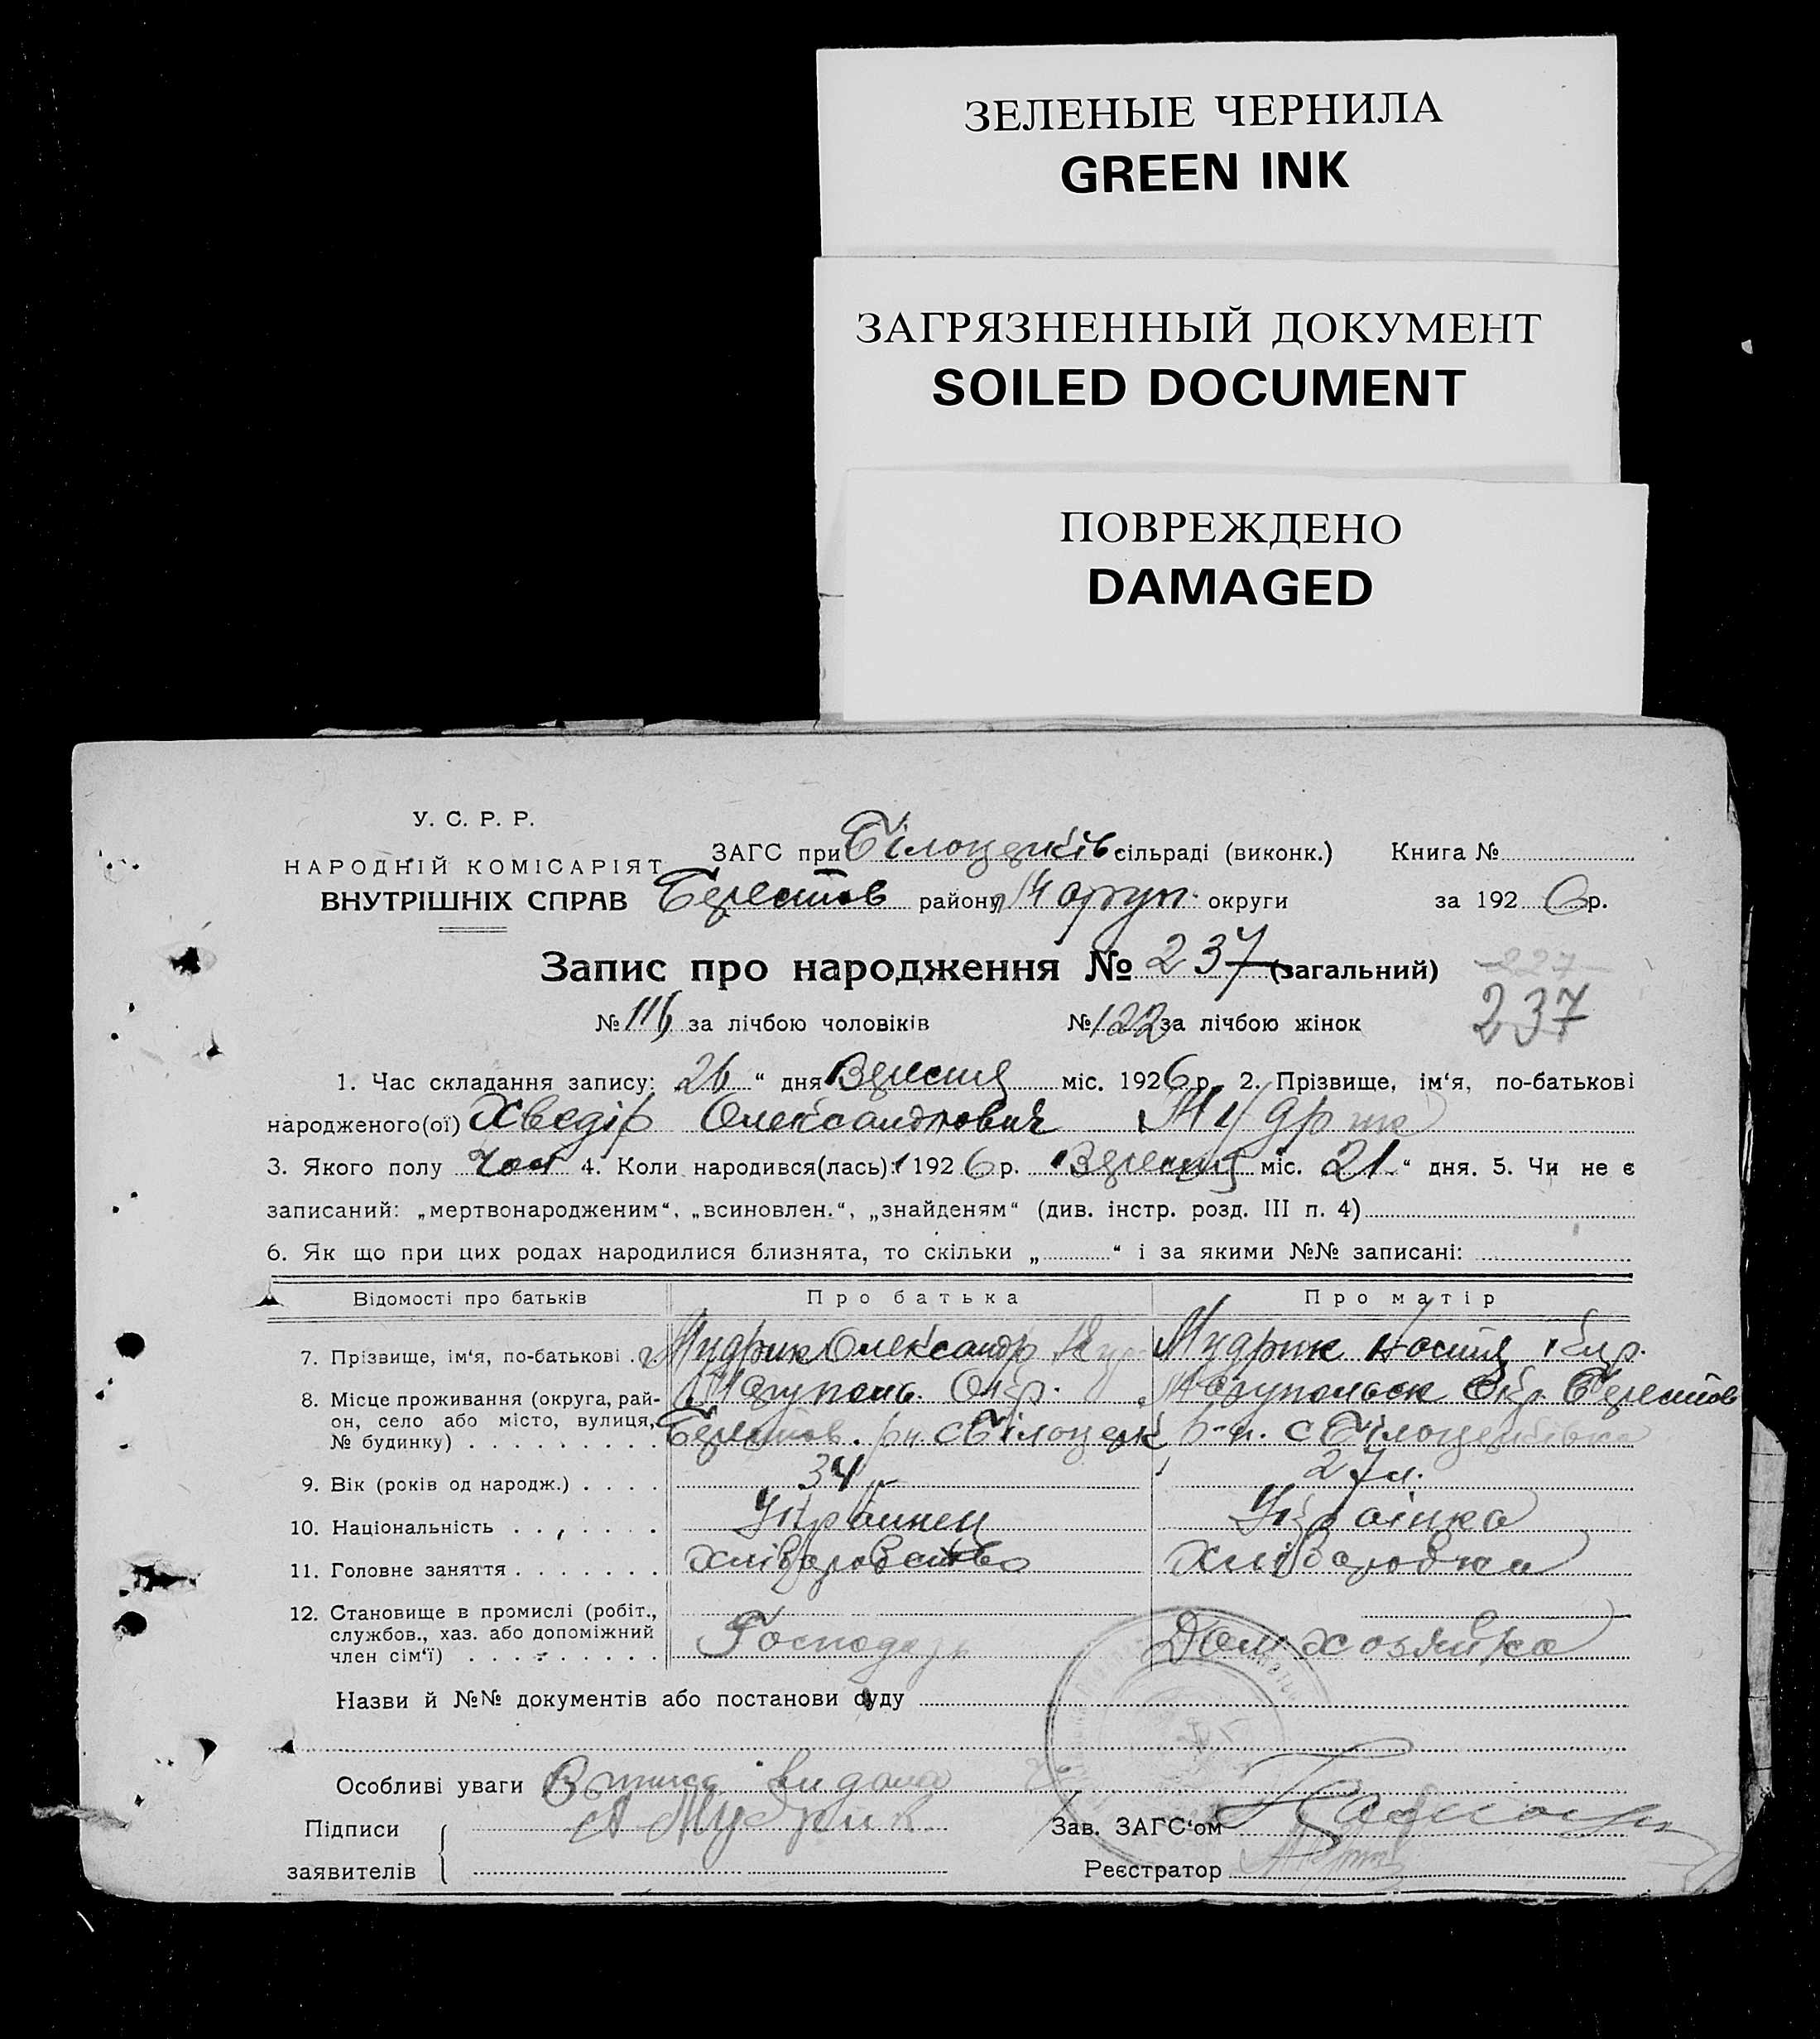 ЗЕЛЕНЫЕ ЧЕРНИЛА
GREEN INK
ЗАГРЯЗНЕННЫЙ ДОКУМЕНТ
SOILED DOCUMENT
ПОВРЕЖДЕНО
DAMAGED
У. С. Р. Р.
НАРОДНІЙ КОМІСАРІЯТ
ВНУТРІШНІХ СПРАВ
ЗАГС при Білоцерків сільраді (виконк.) Книга №
Берестов району округи за 1926 р.
Запис про народження № 237 (загальний) 227
№ 116 за лічбою чоловіків № 122 за лічбою жінок 237
1. Час складання запису: 26 “ дня Вересня міс. 1926 р. 2. Прізвище, ім‘я, по-батькові
народженого(ої) Хведір Олександрович Мудрик
3. Якого полу чол 4. Коли народився(лась): 1926 р. Вересня міс. 21 “ дня. 5. Чи не є
записаний: „мертвонародженим“, „всиновлен.“, „знайденям“ (див. інстр. розд. III п. 4)
6. Як що при цих родах народилися близнята, то скільки „ “ і за якими №№ записані:
Відомості про батьків Про батька Про матір
7. Прізвище, ім‘я, по-батькові Мудрик Олександр Мудрик Настя
8. Місце проживання (округа, рай- Маріупол. Окр. Маріупольск Окр. Берестов
он, село або місто, вулиця, Берестов. рн. с Білоцерк р-н. с Білоцерківка
№ будинку)
9. Вік (років од народж.) 34 27 л.
10. Національність Українец Українка
11. Головне заняття хліборобство хліборобка
12. Становище в промислі (робіт.,
службов., хаз. або допоміжний Господарь Дом хозяйка
член сім‘ї)
Назви й №№ документів або постанови суду
Особливі уваги Впись видана
Підписи А Мудрик Зав. ЗАГС‘ом
заявителів Реєстратор